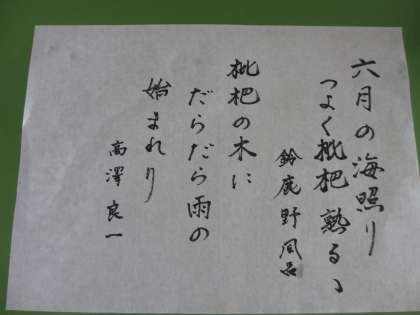 六月の海照り
つよく枇杷熟るゝ
鈴鹿野風呂
枇杷の木に
だらだら雨の
始まれり
高澤良一